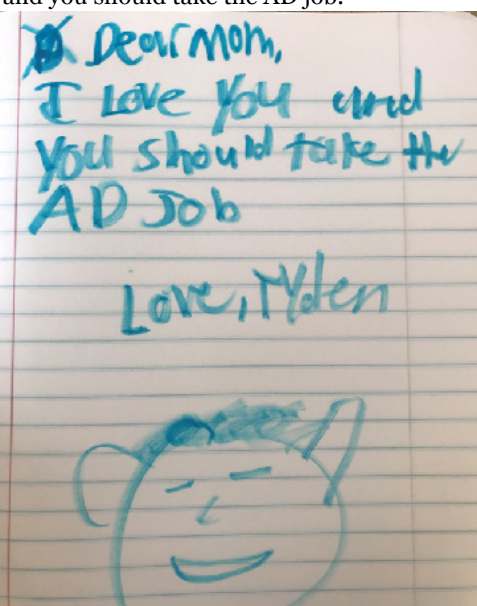 and you should take the AD job.
Dear Mom,
I Love You and
You should take the
AD Job
Love, Ryden